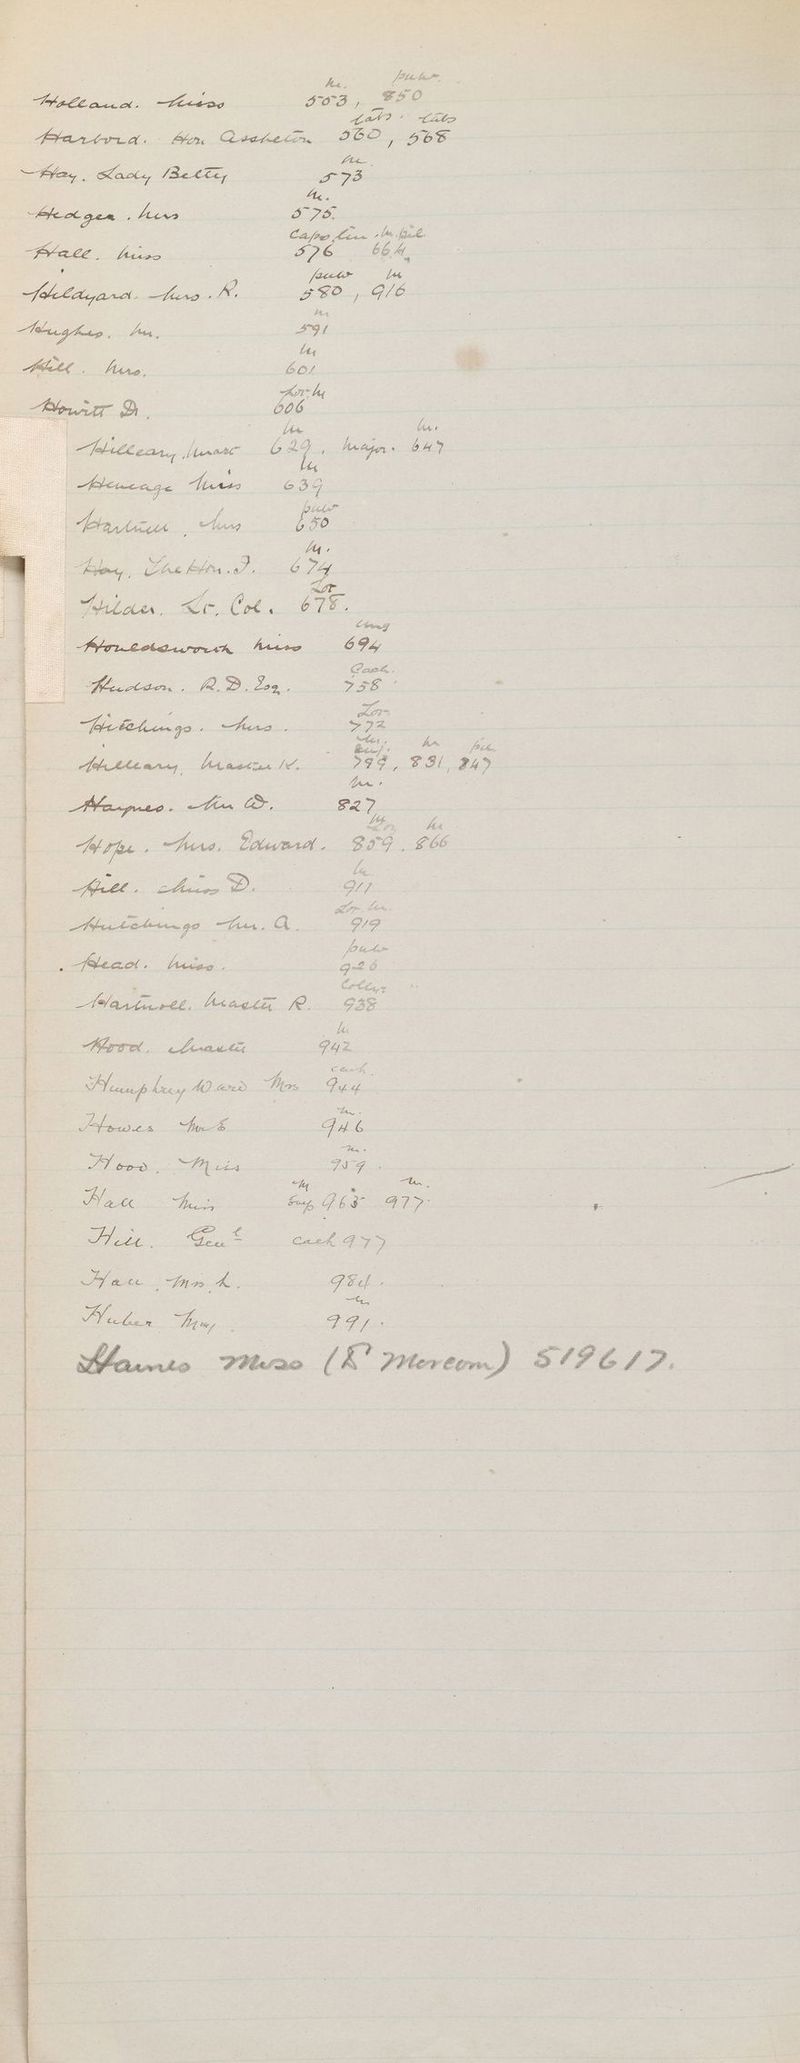 m. pulv.
Holland. Miss 553, 850
tabs. tabs
Harbord. Hon Assheton 560, 568
m.
Hay. Lady Betty 573
m.
Hedges. Mrs 575.
m. pil
Hall. Miss 576 664
pulv m
Hildyard. Mrs. R. 580, 916
m
Hughes. Mr. 591
m
Hill. Mrs. 601
Lot. m
Howitt Dr. 606
m m.
Hilleary. Mast 629. Major. 647
m
Heneage Miss 639
pulv
Hartnell, Mrs 650
m.
Hay. The Hon. I. 674
Lot
Hilder. Lt. Col. 678.
ung
Houldsworth Miss 694
Cach.
Hudson. R.D. Esq. 758
Lot
Hitchings. Mrs. 772
m. m pil
Hilleary. Master K. 799, 831, 847
m.
Haynes. Mr W. 827
m m
Hope. Mrs. Edward. 859. 866
m
Hill. Miss D. 911
Lot. m.
Hutchings Mr. A. 919
pulv
Head. Miss. 926
Collut
Hartnoll. Master R. 938
m
Hood. Master 942
cach.
Humphrey Ward Mrs 944
m.
Howes Mr E 946
m.
Hood. Miss 959.
m m.
Hall Miss 963 977.
Hill. Genl cach 977
Hall. Mrs. h. 984.
m
Huber May 991.
Haines Miss (Dr Morcom) 519617.